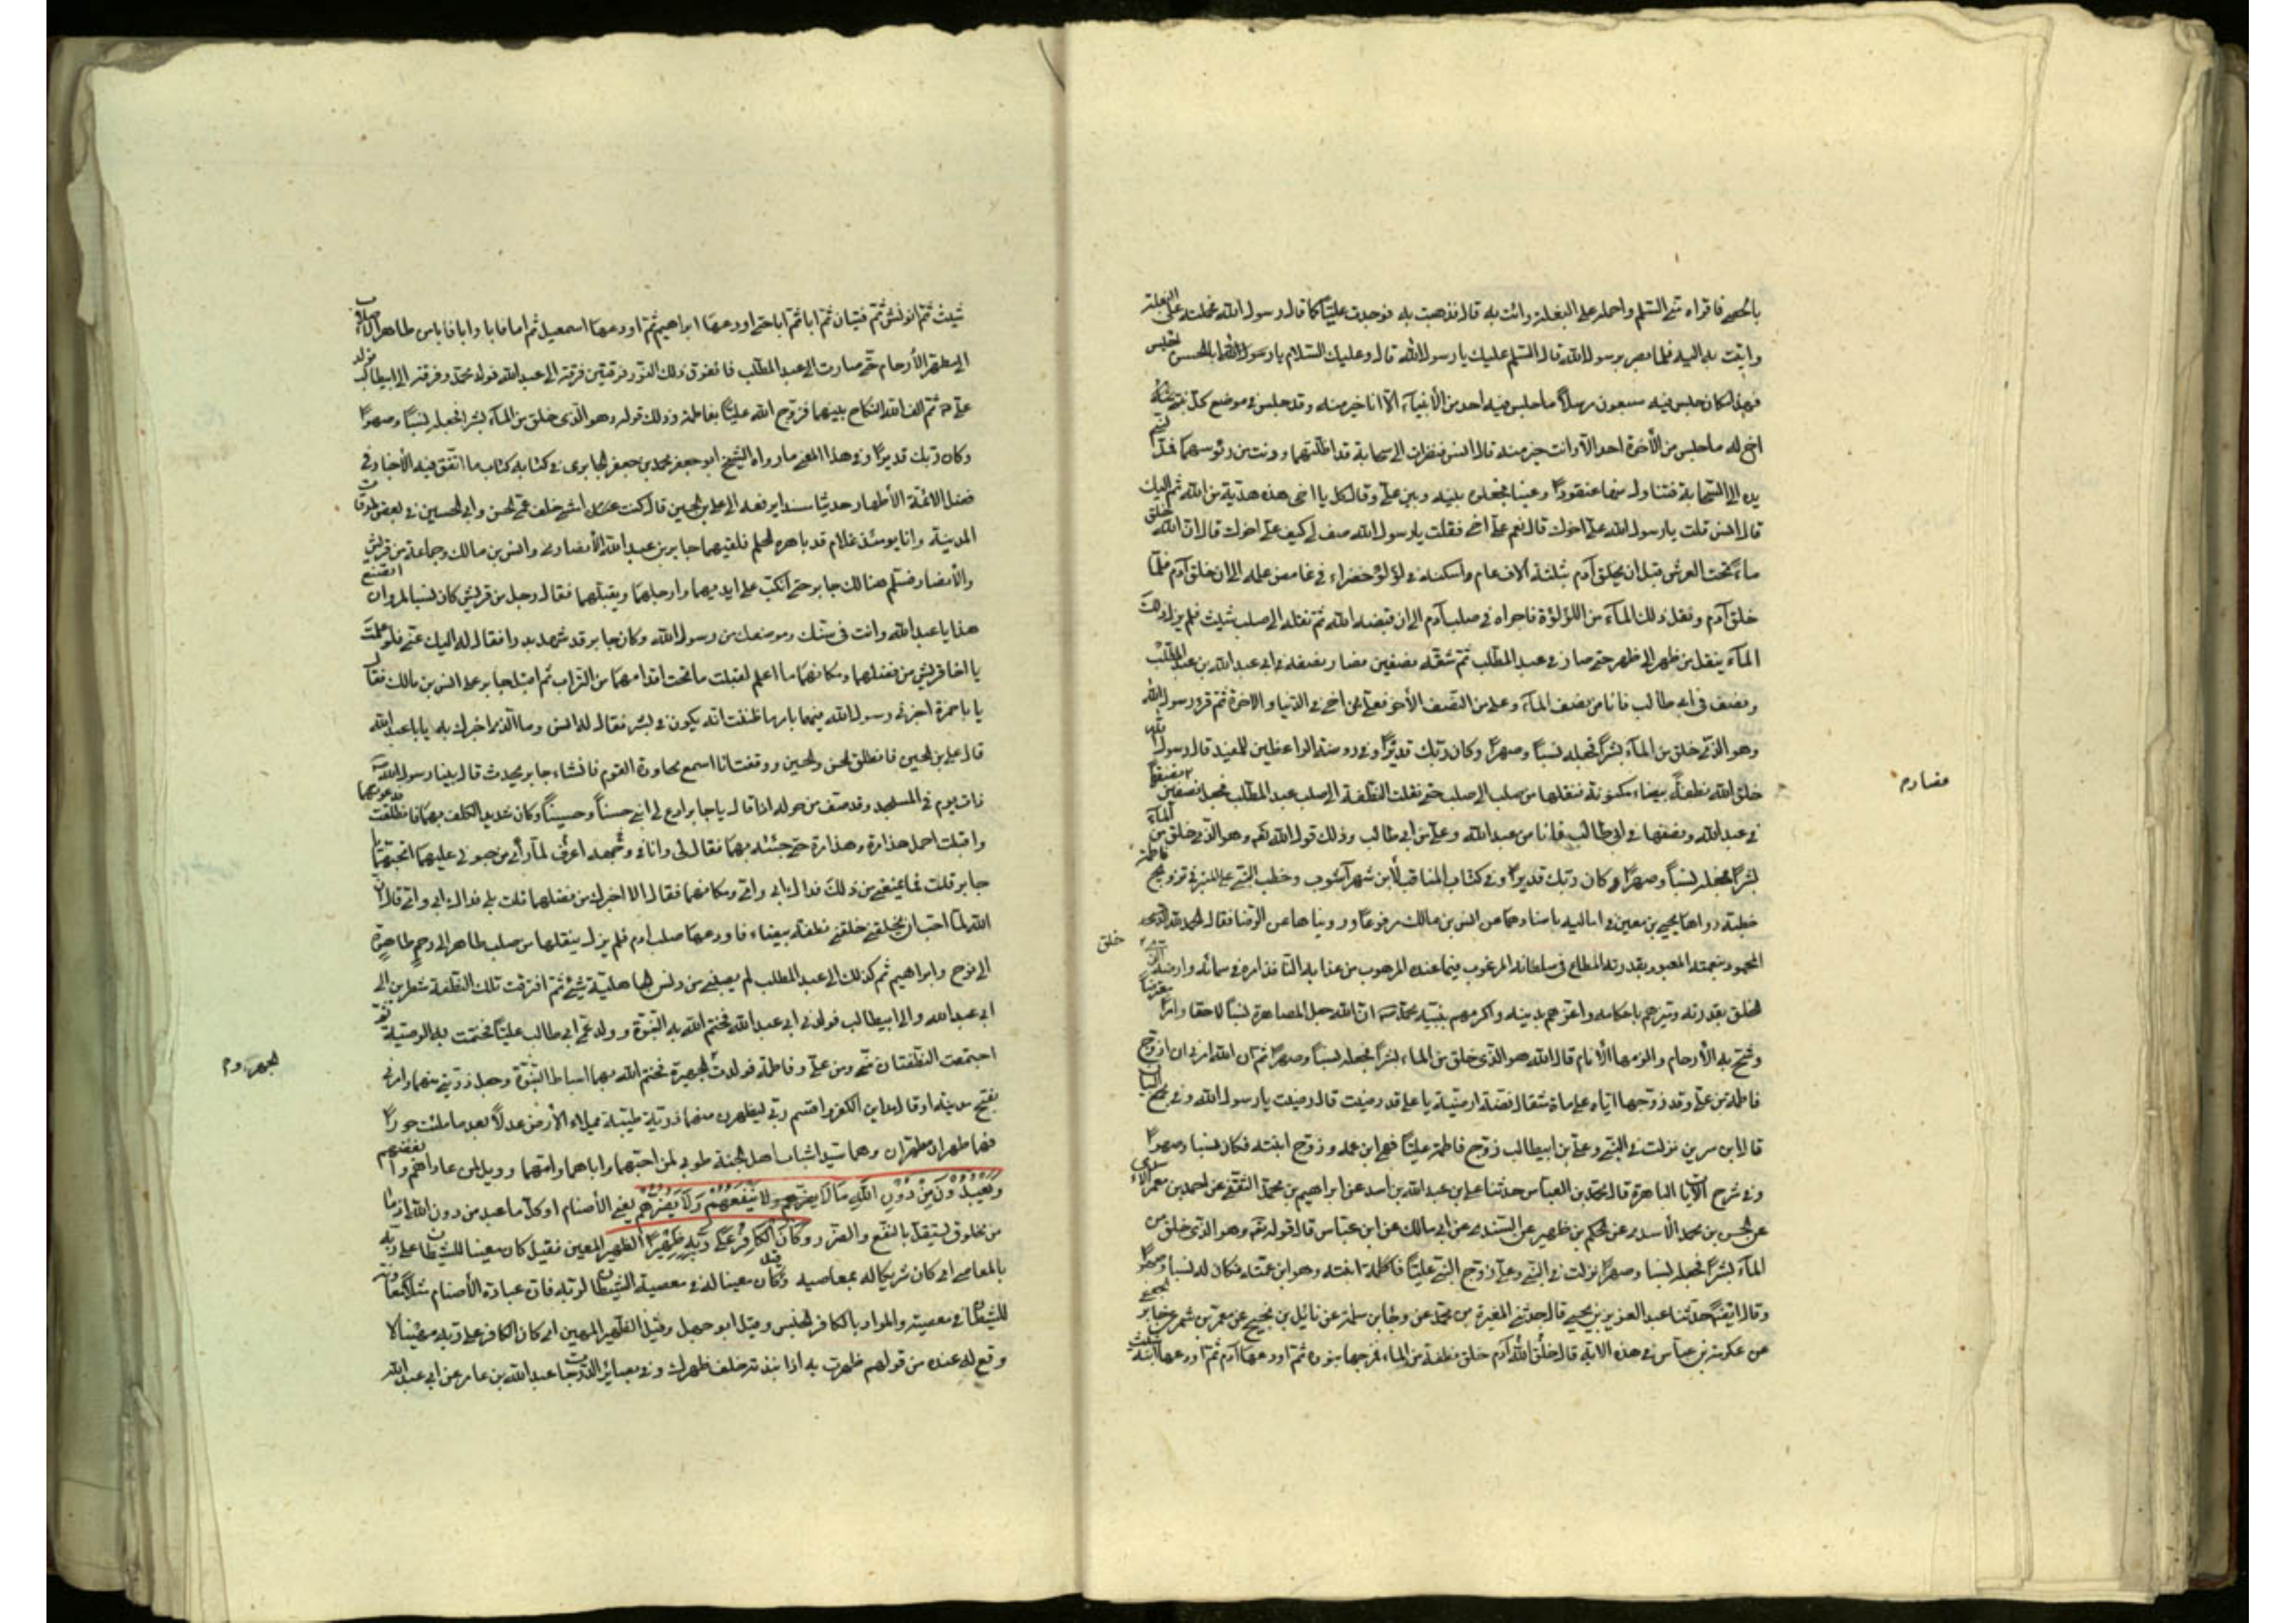 بالحصى فاقراه منى السّلم واحمله على البغلة وائت به قال فذهبت به فوجدت عليّا كما قال رسول الله فحملته على البغلة
واتيت به اليه فلما بصر برسول الله قال السّلم عليك يا رسول الله قال وعليك السّلام يا ابا الحسن اجلس
فهذا مكان جلس فيه سبعون مرسلاً ما جلس فيه احد من الأنبياء الّا انا خير منه وقد جلس في موضع كلّ نبي
اخ له ما جلس من الأخوة احد الّا وانت خير منه قال انس فنظرت الى سحابة قد اظلّتهما ودنت من رؤسهما فمدّ
يده الى السّحابة فتناول منها عنقود عنبا فجعله بينه وبين علي وقال كل يا اخي هذه هديّة من الله ثم اليك
قال انس قلت يا رسول الله علي اخوك قال نعم علي اخي فقلت يا رسول الله صف لي كيف علي اخوك قال ان الله خلق
ماء تحت العرش قبل ان يخلق آدم بثلثة آلاف عام واسكنه في لؤلؤة خضراء في غامض علمه الى ان خلق آدم فلمّا
خلق آدم ونقل ذلك الماء من اللؤلؤة فاجراه في صلب آدم الى ان قبضه الله ثم نقله الى صلب شيث فلم يزل ذلك
الماء ينقل من ظهر الى ظهر حتى صار في عبد المطّلب ثم شقّه نصفين فصار نصفه في ابي عبد الله بن عبد المطّلب
ونصف في ابي طالب فانا من نصف الماء وعلي من النّصف الأخر فعلي اخي في الدّنيا والاخرة ثم قرء رسول الله
وهو الّذي خلق من الماء بشراً فجعله نسبًا وصهرًا وكان ربّك قديرًا وفي روضة الواعظين للمفيد قال رسول الله
خلق الله نطفة بيضاء مكنونة فنقلها من صلب الى صلب حتى نقلت النّطفة الى صلب عبد المطلب فجعل نصفين نصفها
في عبد الله ونصفها في ابي طالب فانا من عبد الله وعلي من ابي طالب وذلك قول الله تعم وهو الّذي خلق من الماء
بشرًا فجعله نسبًا وصهرًا وكان ربّك قديرًا وفي كتاب المناقب لأبن شهرآشوب وخطب النّبي على المنبر في تزويج فاطمة
خطبة رواها يحيى بن معين في اماليه باسنادهما عن انس بن مالك مرفوعًا ورويناها عن الرّضا فقال الحمد لله
المحمود بنعمته المعبود بقدرته المطاع في سلطانه المرغوب فيما عنده المرهوب من عذابه النّافذ امره في سمائه وارضه الّذي
خلق
الخلق بقدرته وميّزهم باحكامه واعزّهم بدينه واكرمهم بنبيّه محمّد انّ الله جعل المصاهرة نسبًا لاحقا وامرًا مفترضًا
وشج به الأرحام والزمها الأنام قال الله هو الّذي خلق من الماء بشرًا فجعله نسبًا وصهرًا ثم ان الله امرني ان ازوّج
فاطمة من علي وقد زوّجها ايّاه على اربع ماة مثقال فضّة ارضيت يا علي قد رضيت قال رضيت يا رسول الله وفي مجمع البيا
قال ابن سرين نزلت في النّبي وعليّ بن ابيطالب زوّج فاطمة عليّا فهو ابن عمه وزوج ابنته فكان نسبا وصهرًا
وفي شرح الآيات الباهرة قال محمّد بن العباس حدثنا علي بن عبد الله بن اسد عن ابراهيم بن محمّد الثقفي عن احمد بن معمر الأسدي
عن الحسن بن محمد الأسدي عن الحكم بن ظهير عن السّدي عن ابي مالك عن ابن عبّاس قال قوله تعم وهو الذي خلق من
الماء بشرًا فجعله نسبا وصهرًا نزلت في النّبي وعلي زوّج النّبي عليّا فاطمة ابنته وهو ابن عمّه فكان له نسبا وصهرًا
وقال ايضًا حدّثنا عبد العزيز بن يحيى قال حدثني المغيرة بن محمّد عن رجاء بن سلمة عن نائل بن نجيح عن عمرو بن شمر عن جابر الجعفي
عن عكرمة عن ابن عبّاس في هذه الاية قال خلق الله آدم وخلق نطفة من الماء فمزجها بنوره ثم اودعها آدم ثم اودعها ابنه
مضاده م
شيث ثم انوش ثم قينان ثم ابا ثم ابا حتى اودعها ابراهيم ثم اودعها اسمعيل ثم اما فاما وابا فابا من طاهر الأصلاب
الى مطهر الأرحام حتى صارت الى عبد المطّلب فانفرق ذلك النّور فرقتين فرقة الى عبد الله فولد محمّد وفرقة الى ابيطالب فولد
علي ثم الف الله النكاح بينهما فزوّج الله عليّا بفاطمة وذلك قوله وهو الّذي خلق من الماء بشرا فجعله نسبًا وصهرًا
وكان ربّك قديرًا وفي هذا المعنى ما رواه الشّيخ ابو جعفر محمّد بن جعفر الحايري في كتابه كتاب ما اتّفق فيه الأخبار في
فضل الائمّة الأطهار حديثا مسندا يرفعه الى علي بن الحسين قال كنت امشي خلف عمّي الحسن وابي الحسين في بعض طرقات
المدينة وانا يومئذ غلام قد ناهزه الحلم فلقيهما جابر بن عبد الله الأنصاري وانس بن مالك وجماعة من قريش
والأنصار فسلّم هنالك جابر حتى انكبّ على ايديهما وارجلهما ويقبّلهما فقال رجل من قريش كان نسيبا لمروان اتصنع
هذا يا عبد الله وانت في سنّك وموضعك من رسول الله وكان جابر قد شهد بدرا فقال له اليك عنّي فلو علمت
يا اخا قريش من فضلهما ومكانهما ما اعلم لقبّلت ما تحت اقدامهما من التراب ثم اقبل جابر على انس بن مالك فقال
يا با حمزة اخبرني رسول الله فيهما بامر ما ظننت انّه يكون في بشر فقال له انس وما الّذي اخبرك به يا با عبد الله
قال علي بن الحسين فانطلق الحسن والحسين ووقفت انا اسمع محاورة القوم فانشاء جابر يحدث قال بينا رسول الله
ذات يوم في المسجد وقد خفّ من حوله اذ قال يا جابر ادع لي ابني حسناً وحسيناً وكان شديد الكلف بهما فانطلقت فدعوتهما
واقبلت احمل هذا مرة وهذا مرة حتى جئته بهما فقال لي وانا اعرف السرور في وجهه لمّا رأى من حبّوني عليهما اتحبّهما يا
جابر قلت فما يمنعني من ذلك فداك ابي وامّي ومكانهما فقال الا اخبرك من فضلهما قلت بلى فداك ابي وامي قال انّ
الله لمّا احب ان يخلقني خلقني نطفة بيضاء فاودعها صلب ادم فلم يزل ينقلها من صلب طاهر الى رحم طاهرة
الى نوح وابراهيم ثم كذلك الى عبد المطلب لم يصبني من دنس الجاهلية شيء ثم افترقت تلك النّطفة شطرين الى
ابي عبد الله والى ابيطالب فولدني ابي عبد الله فختم الله به النبّوة وولد عمّي ابي طالب عليّا فختمت به الوصية ثم
اجتمعت النّطفتان منّي ومن علي وفاطمة فولدت الجهر والجهيرة فختم الله بهما اسباط النّبوّة وجعل ذرّيتي منهما وامرني
بفتح مدينة او قال مداين الكفر واقسم ربّي ليظهرن منهما ذريّة طيّبة يملاء الأرض عدلاً بعد ما ملئت جورًا
فهما طهران مطهّران وهما سيّدا شباب اهل الجنّة طوبى لمن احبّهما واباهما وامّهما وويل لمن عاداهم وابغضهم
وَيَعْبُدُونَ مِنْ دُونِ اللهِ مَا لَا يَنْفَعُهُمْ وَلَا يَضُرُّهُمْ يعنى الأصنام او كلّ ما عبد من دون الله اذ ما
من مخلوق يستقلّ بالنّفع والضرر وَكَانَ الْكَافِرُ عَلَى رَبِّهِ ظَهِيرًا الظّهير المعين فقيل كان معينا للشيطان على ربّه
بالمعاصي اي كان شريكا له بمعاصيه وقيل كان معينا له في معصية الشيطان لربّه فان عبادة الأصنام
للشيطان في معصيته والمراد بالكافر الجنس وقيل ابو جهل وقيل الظّهير المهين اي كان الكافر على ربّه مهينا لا
وقع له عنده من قولهم ظهرت به اذا نبذته خلف ظهرك وفي بصائر الدّرجات عبد الله بن عامر عن ابي عبد الله